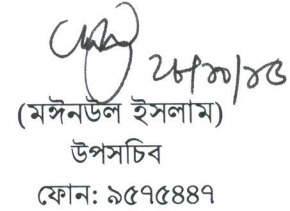 ২৮/১০/১৫
(মঈনউল ইসলাম)
উপসচিব
ফোন: ৯৫৭৫৪৪৭